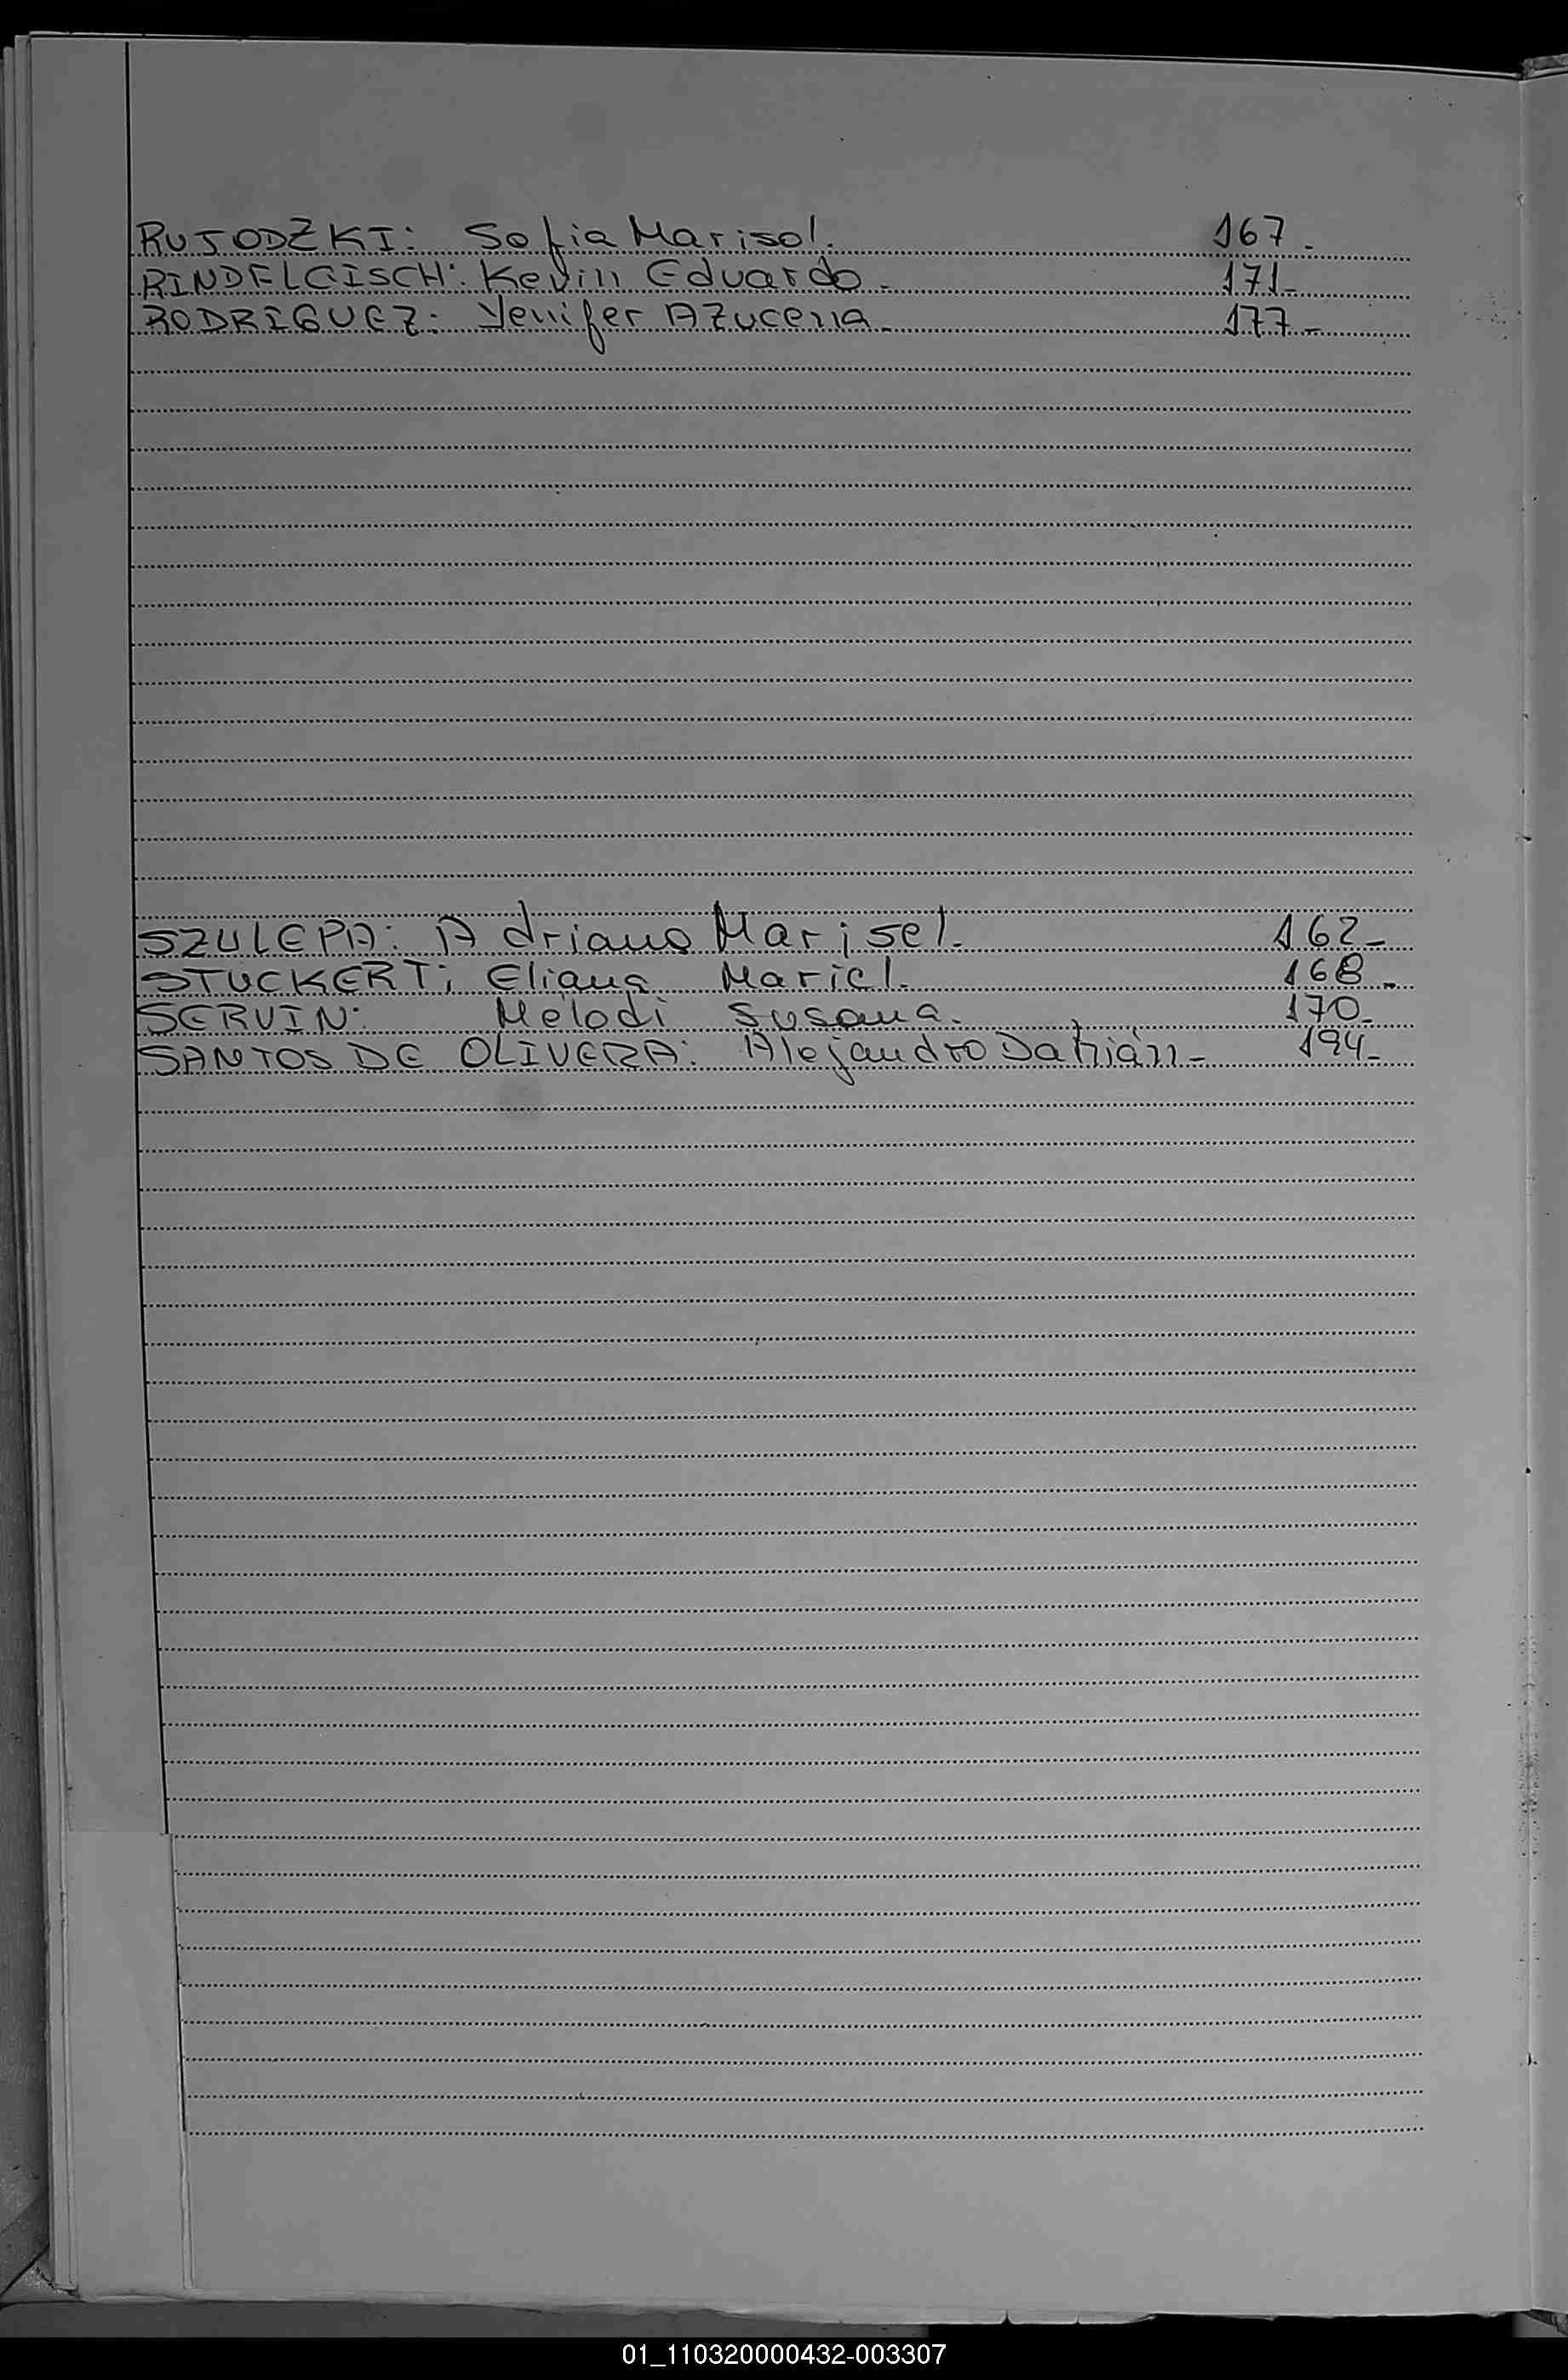 RUJODZKI: Sofia Marisol. 167.
RINDFLEISCH: Kevin Eduardo. 171-
RODRIGUEZ: Yenifer Azucena. 177-
SZULEPA: Adriana Marisel. 162-
STUCKERT; Eliana Mariel. 168.
SERVIN: Melodi Susana. 170-
SANTOS DE OLIVERA: Alejandro Damián- 194-
01_110320000432-003307